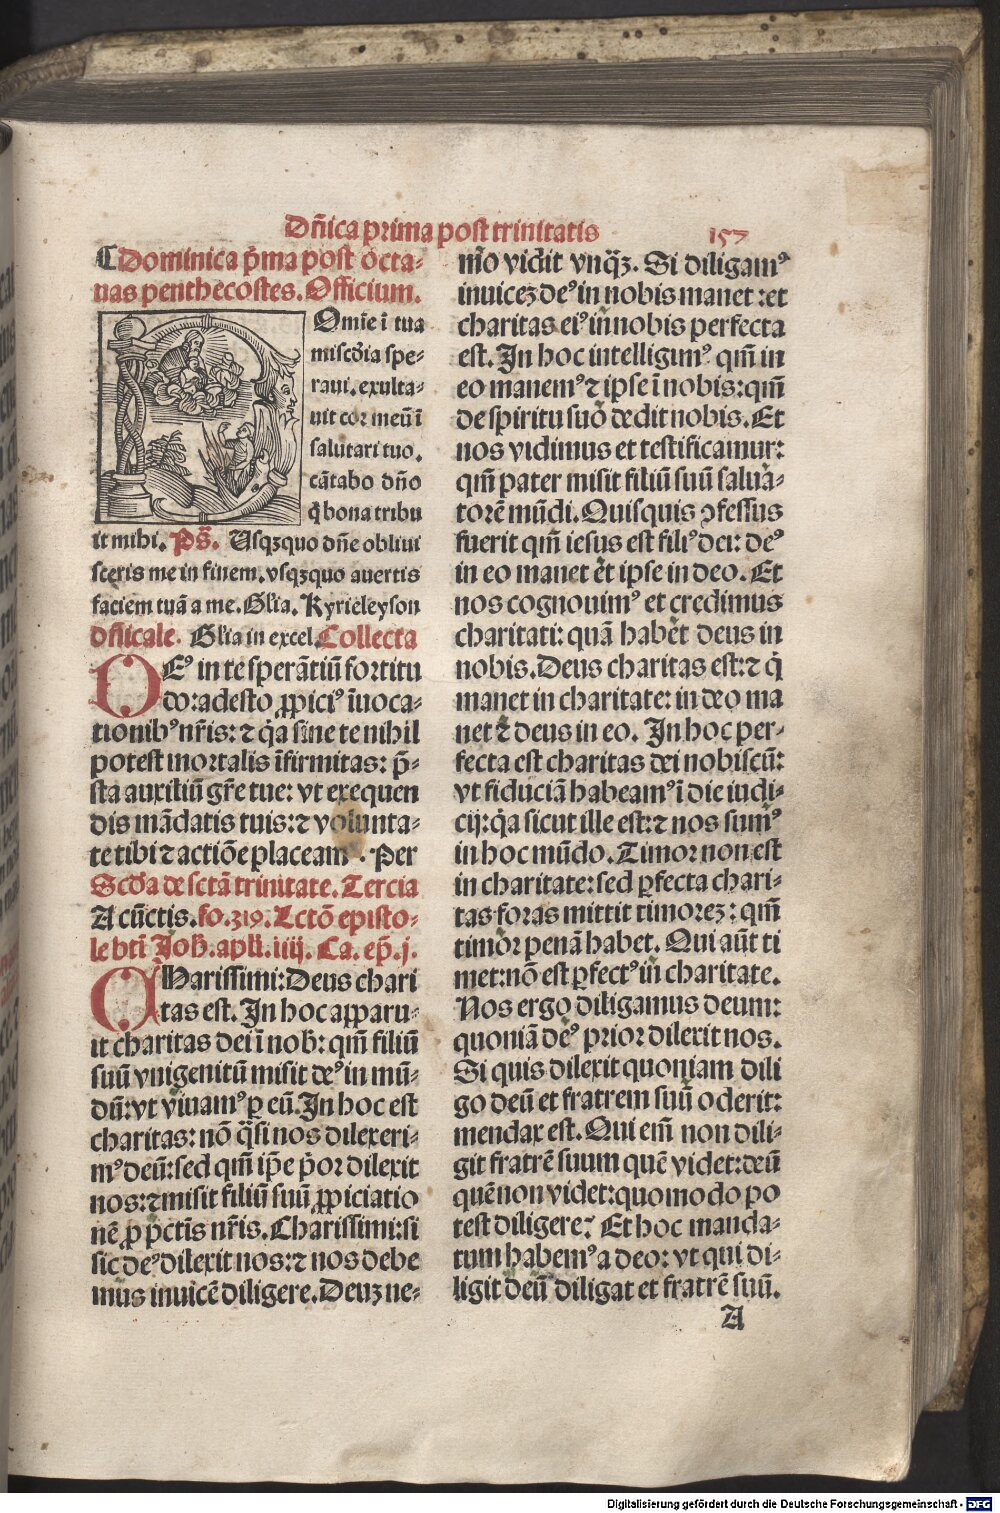 Dn̄ica prima post trinitatis 157
Dominica p̄ma post octa⸗
nas penthecostes. Officium.
Omīe ī tua
mīscd̄ia spe⸗
raui. exulta⸗
uit cor meū ī
salutari tuo.
cātabo dn̄o
q̄ bona tribu
it mihi. Ps̄. Usqꝫquo dn̄e obliui
sceris me in finem. vsqꝫquo auertis
faciem tuā a me. Gl̄ia. Kyrieleyson
dn̄icale. Gl̄ia in excel. Collecta
Deꝰ in te sperātiū fortitu
do: adesto ꝓpiciꝰ īuoca⸗
tionibꝰ nr̄is: ⁊ q̄a sine te nihil
potest mortalis īfirmitas: p̄⸗
sta auxiliū gr̄e tue: vt exequen
dis mādatis tuis: ⁊ volunta⸗
te tibi ⁊ actiōe placeamꝰ. Per
Scd̄a de sctā trinitate. Tercia
A cūctis. fo. 319. Lctō episto⸗
le btī Joh̄. apl̄i. iiij. Ca. ep̄. j.
CHarissimi: Deus chari
tas est. In hoc apparu⸗
it charitas dei ī nob̄: qm̄ filiū
suū vnigenitū misit deꝰ in mū⸗
dū: vt viuamꝰ ꝑ eū. In hoc est
charitas: nō q̄si nos dilexeri⸗
mꝰ deū: sed qm̄ ip̄e p̄or dilexit
nos: ⁊ misit filiū suū ꝓpiciatio
nē ꝓ pctīs nr̄is. Charissimi: si
sic deꝰ dilexit nos: ⁊ nos debe
mus inuicē diligere. Deuꝫ ne⸗
mo vidit vnq̄ꝫ. Si diligamꝰ
inuiceꝫ deꝰ in nobis manet: et
charitas eiꝰ in nobis perfecta
est. In hoc intelligimꝰ qm̄ in
eo manemꝰ ⁊ ipse ī nobis: qm̄
de spiritu suo dedit nobis. Et
nos vidimus et testificamur:
qm̄ pater misit filiū suū salua⸗
torē mūdi. Quisquis ꝯfessus
fuerit qm̄ iesus est filiꝰ dei: deꝰ
in eo manet et ipse in deo. Et
nos cognouimꝰ et credimus
charitati: quā habet deus in
nobis. Deus charitas est: ⁊ q̄
manet in charitate: in deo ma
net ⁊ deus in eo. In hoc per⸗
fecta est charitas dei nobiscū:
vt fiduciā habeamꝰ ī die iudi⸗
cij: q̄a sicut ille est: ⁊ nos sumꝰ
in hoc mūdo. Timor non est
in charitate: sed ꝑfecta chari⸗
tas foras mittit timoreꝫ: qm̄
timor penā habet. Qui aūt ti
met: nō est ꝑfectꝰ in charitate.
Nos ergo diligamus deum:
quoniā deꝰ prior dilexit nos.
Si quis dilexit quoniam dili
go deū et fratrem suū oderit:
mendax est. Qui em̄ non dili⸗
git fratrē suum quē videt: deū
quē non videt: quomodo po
test diligere? Et hoc manda⸗
tum habemꝰ a deo: vt qui di⸗
ligit deū diligat et fratrē suū.
A
Digitalisierung gefördert durch die Deutsche Forschungsgemeinschaft - DFG